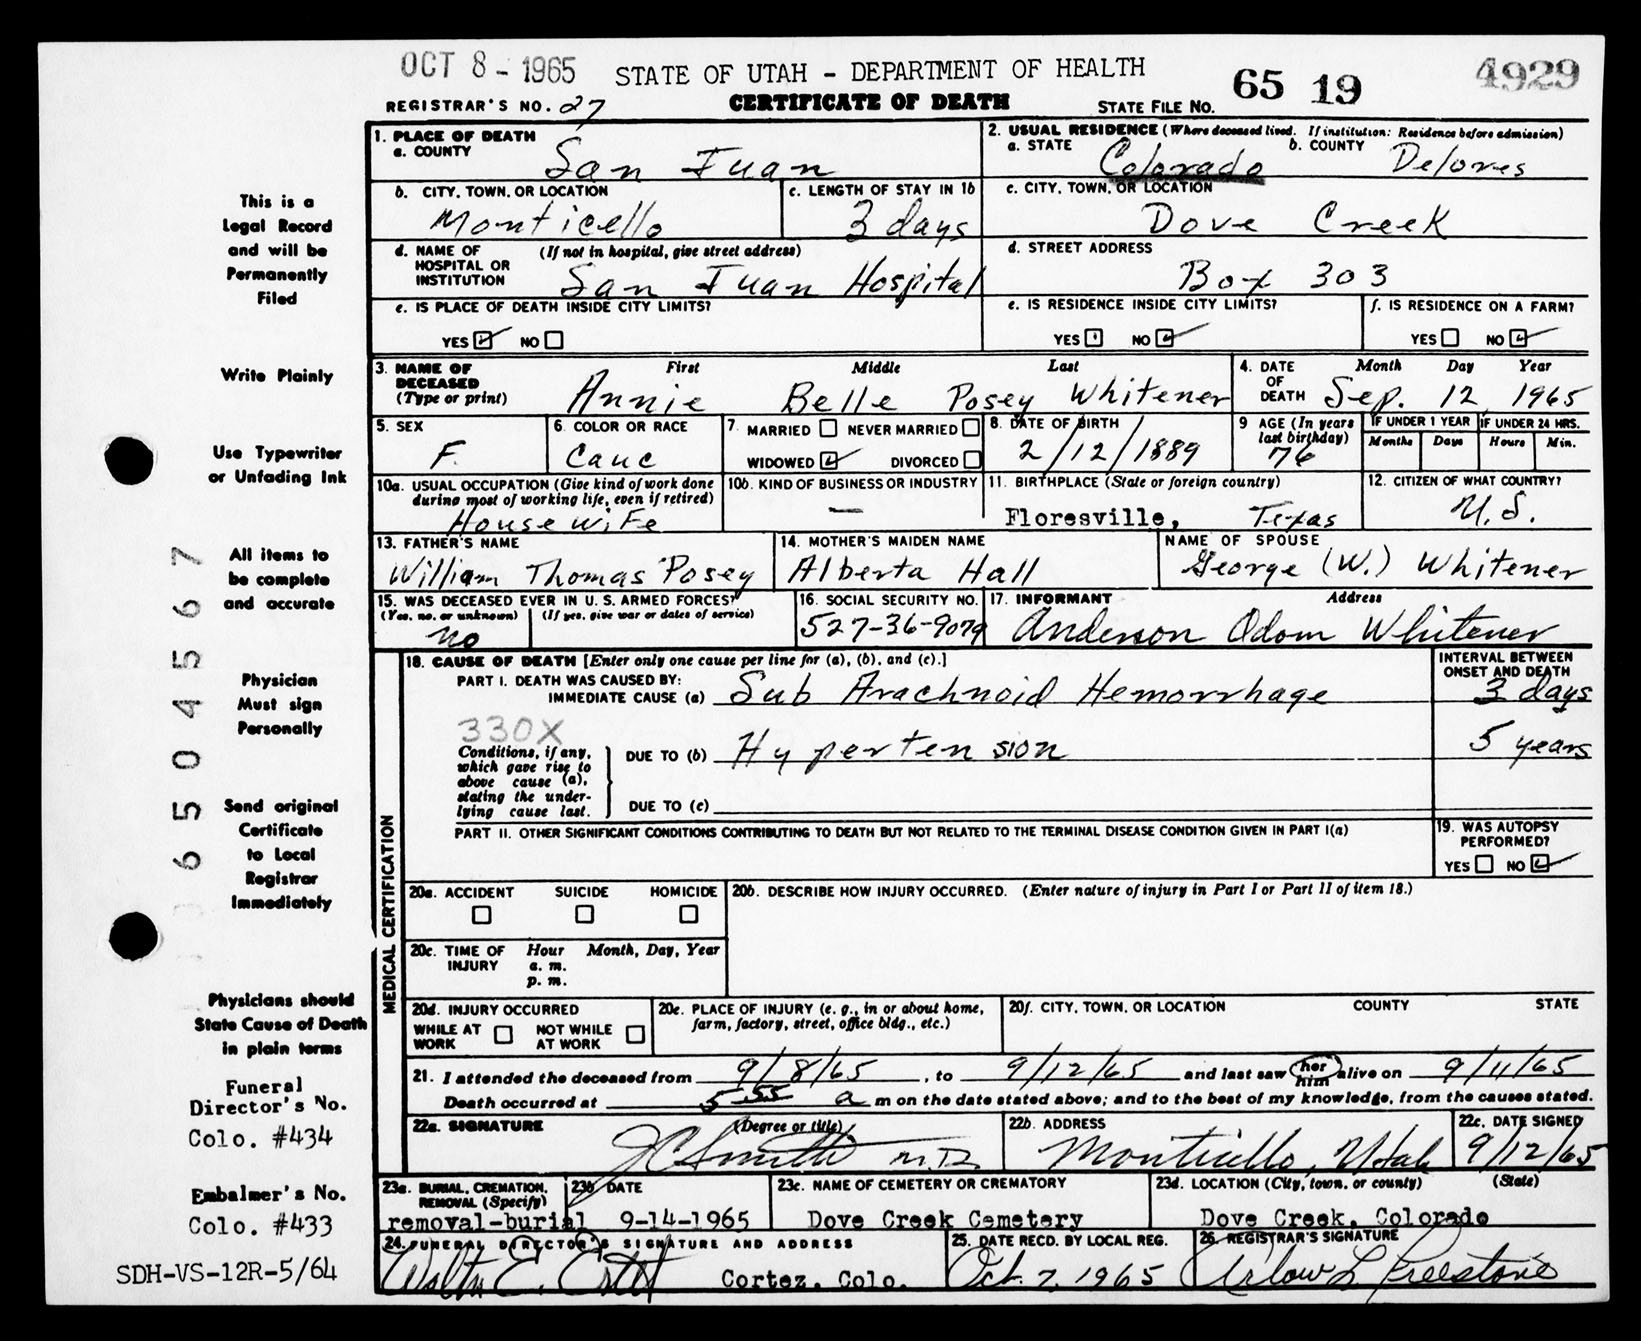 OCT 8 - 1965 STATE OF UTAH - DEPARTMENT OF HEALTH 65 19 4929
REGISTRAR'S NO. 27 CERTIFICATE OF DEATH STATE FILE NO.
1. PLACE OF DEATH
a. COUNTY San Juan
2. USUAL RESIDENCE (Where deceased lived. If institution: Residence before admission)
a. STATE Colorado b. COUNTY Delores
b. CITY, TOWN, OR LOCATION Monticello
c. LENGTH OF STAY IN 1b 3 days
c. CITY, TOWN, OR LOCATION Dove Creek
d. NAME OF HOSPITAL OR INSTITUTION (If not in hospital, give street address) San Juan Hospital
d. STREET ADDRESS Box 303
e. IS PLACE OF DEATH INSIDE CITY LIMITS?
YES NO
e. IS RESIDENCE INSIDE CITY LIMITS?
YES NO
f. IS RESIDENCE ON A FARM?
YES NO
3. NAME OF DECEASED (Type or print) First Middle Last
Annie Belle Posey Whitener
4. DATE OF DEATH Month Day Year
Sep. 12 1965
5. SEX F.
6. COLOR OR RACE Cauc
7. MARRIED NEVER MARRIED
WIDOWED DIVORCED
8. DATE OF BIRTH 2/12/1889
9. AGE (In years last birthday) 76
IF UNDER 1 YEAR Months Days
IF UNDER 24 HRS. Hours Min.
10a. USUAL OCCUPATION (Give kind of work done during most of working life, even if retired) House wife
10b. KIND OF BUSINESS OR INDUSTRY —
11. BIRTHPLACE (State or foreign country) Floresville, Texas
12. CITIZEN OF WHAT COUNTRY? U.S.
13. FATHER'S NAME William Thomas Posey
14. MOTHER'S MAIDEN NAME Alberta Hall
NAME OF SPOUSE George (W.) Whitener
15. WAS DECEASED EVER IN U. S. ARMED FORCES?
(Yes, no, or unknown) (If yes, give war or dates of service)
no
16. SOCIAL SECURITY NO. 527-36-9079
17. INFORMANT Address
Anderson Odom Whitener
MEDICAL CERTIFICATION
18. CAUSE OF DEATH [Enter only one cause per line for (a), (b), and (c).]
INTERVAL BETWEEN ONSET AND DEATH
PART I. DEATH WAS CAUSED BY:
IMMEDIATE CAUSE (a) Sub Arachnoid Hemorrhage 3 days
330X
Conditions, if any, which gave rise to above cause (a), stating the underlying cause last.
DUE TO (b) Hypertension 5 years
DUE TO (c)
PART II. OTHER SIGNIFICANT CONDITIONS CONTRIBUTING TO DEATH BUT NOT RELATED TO THE TERMINAL DISEASE CONDITION GIVEN IN PART I(a)
19. WAS AUTOPSY PERFORMED?
YES NO
20a. ACCIDENT SUICIDE HOMICIDE
20b. DESCRIBE HOW INJURY OCCURRED. (Enter nature of injury in Part I or Part II of item 18.)
20c. TIME OF INJURY Hour Month, Day, Year
a. m.
p. m.
20d. INJURY OCCURRED
WHILE AT WORK NOT WHILE AT WORK
20e. PLACE OF INJURY (e. g., in or about home, farm, factory, street, office bldg., etc.)
20f. CITY, TOWN, OR LOCATION COUNTY STATE
21. I attended the deceased from 9/8/65, to 9/12/65 and last saw her him alive on 9/11/65
Death occurred at 5:55 a m on the date stated above; and to the best of my knowledge, from the causes stated.
22a. SIGNATURE (Degree or title)
JC Smith M.D.
22b. ADDRESS Monticello, Utah
22c. DATE SIGNED 9/12/65
23a. BURIAL, CREMATION, REMOVAL (Specify) removal-burial
23b DATE 9-14-1965
23c. NAME OF CEMETERY OR CREMATORY Dove Creek Cemetery
23d. LOCATION (City, town, or county) (State)
Dove Creek, Colorado
24. FUNERAL DIRECTOR'S SIGNATURE AND ADDRESS
Walter E. Ertel Cortez, Colo.
25. DATE RECD. BY LOCAL REG. Oct. 7, 1965
26. REGISTRAR'S SIGNATURE Arlow L Freestone
This is a
Legal Record
and will be
Permanently
Filed
Write Plainly
Use Typewriter
or Unfading Ink
All items to
be complete
and accurate
Physician
Must sign
Personally
Send original
Certificate
to Local
Registrar
Immediately
Physicians should
State Cause of Death
in plain terms
Funeral
Director's No.
Colo. #434
Embalmer's No.
Colo. #433
SDH-VS-12R-5/64
65504567